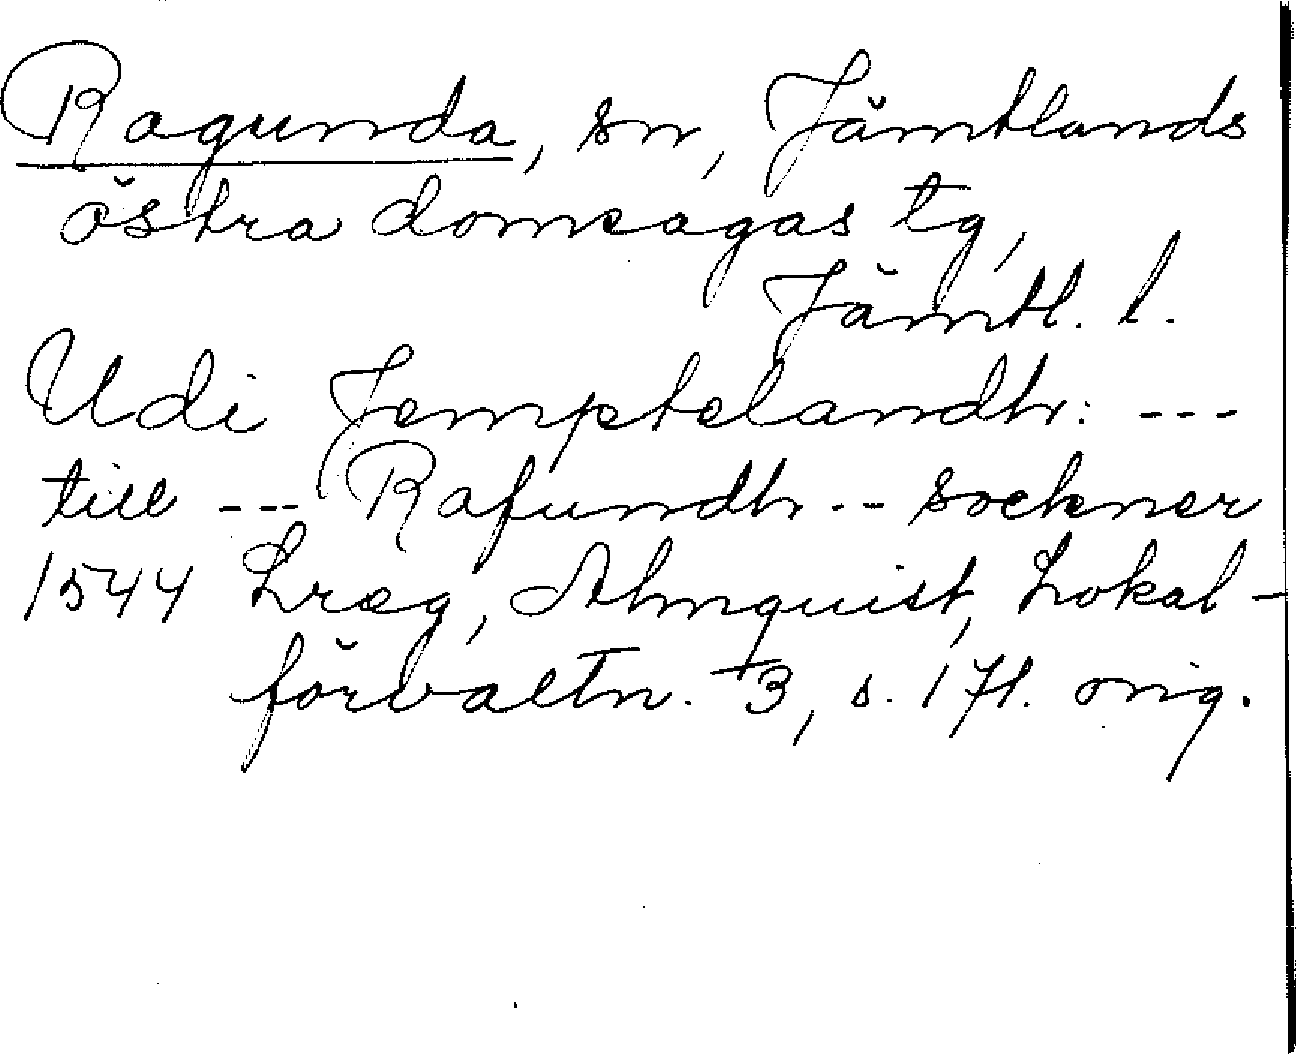 Ragunda, sn, Jämtlands
östra domsagas tg,
Jämtl. l.
Udi Jemptelandh: ---
till --- Rafundh -- sockner
1544 Lreg, Almquist, Lokal-
förvaltn. 3, s. 171. orig.